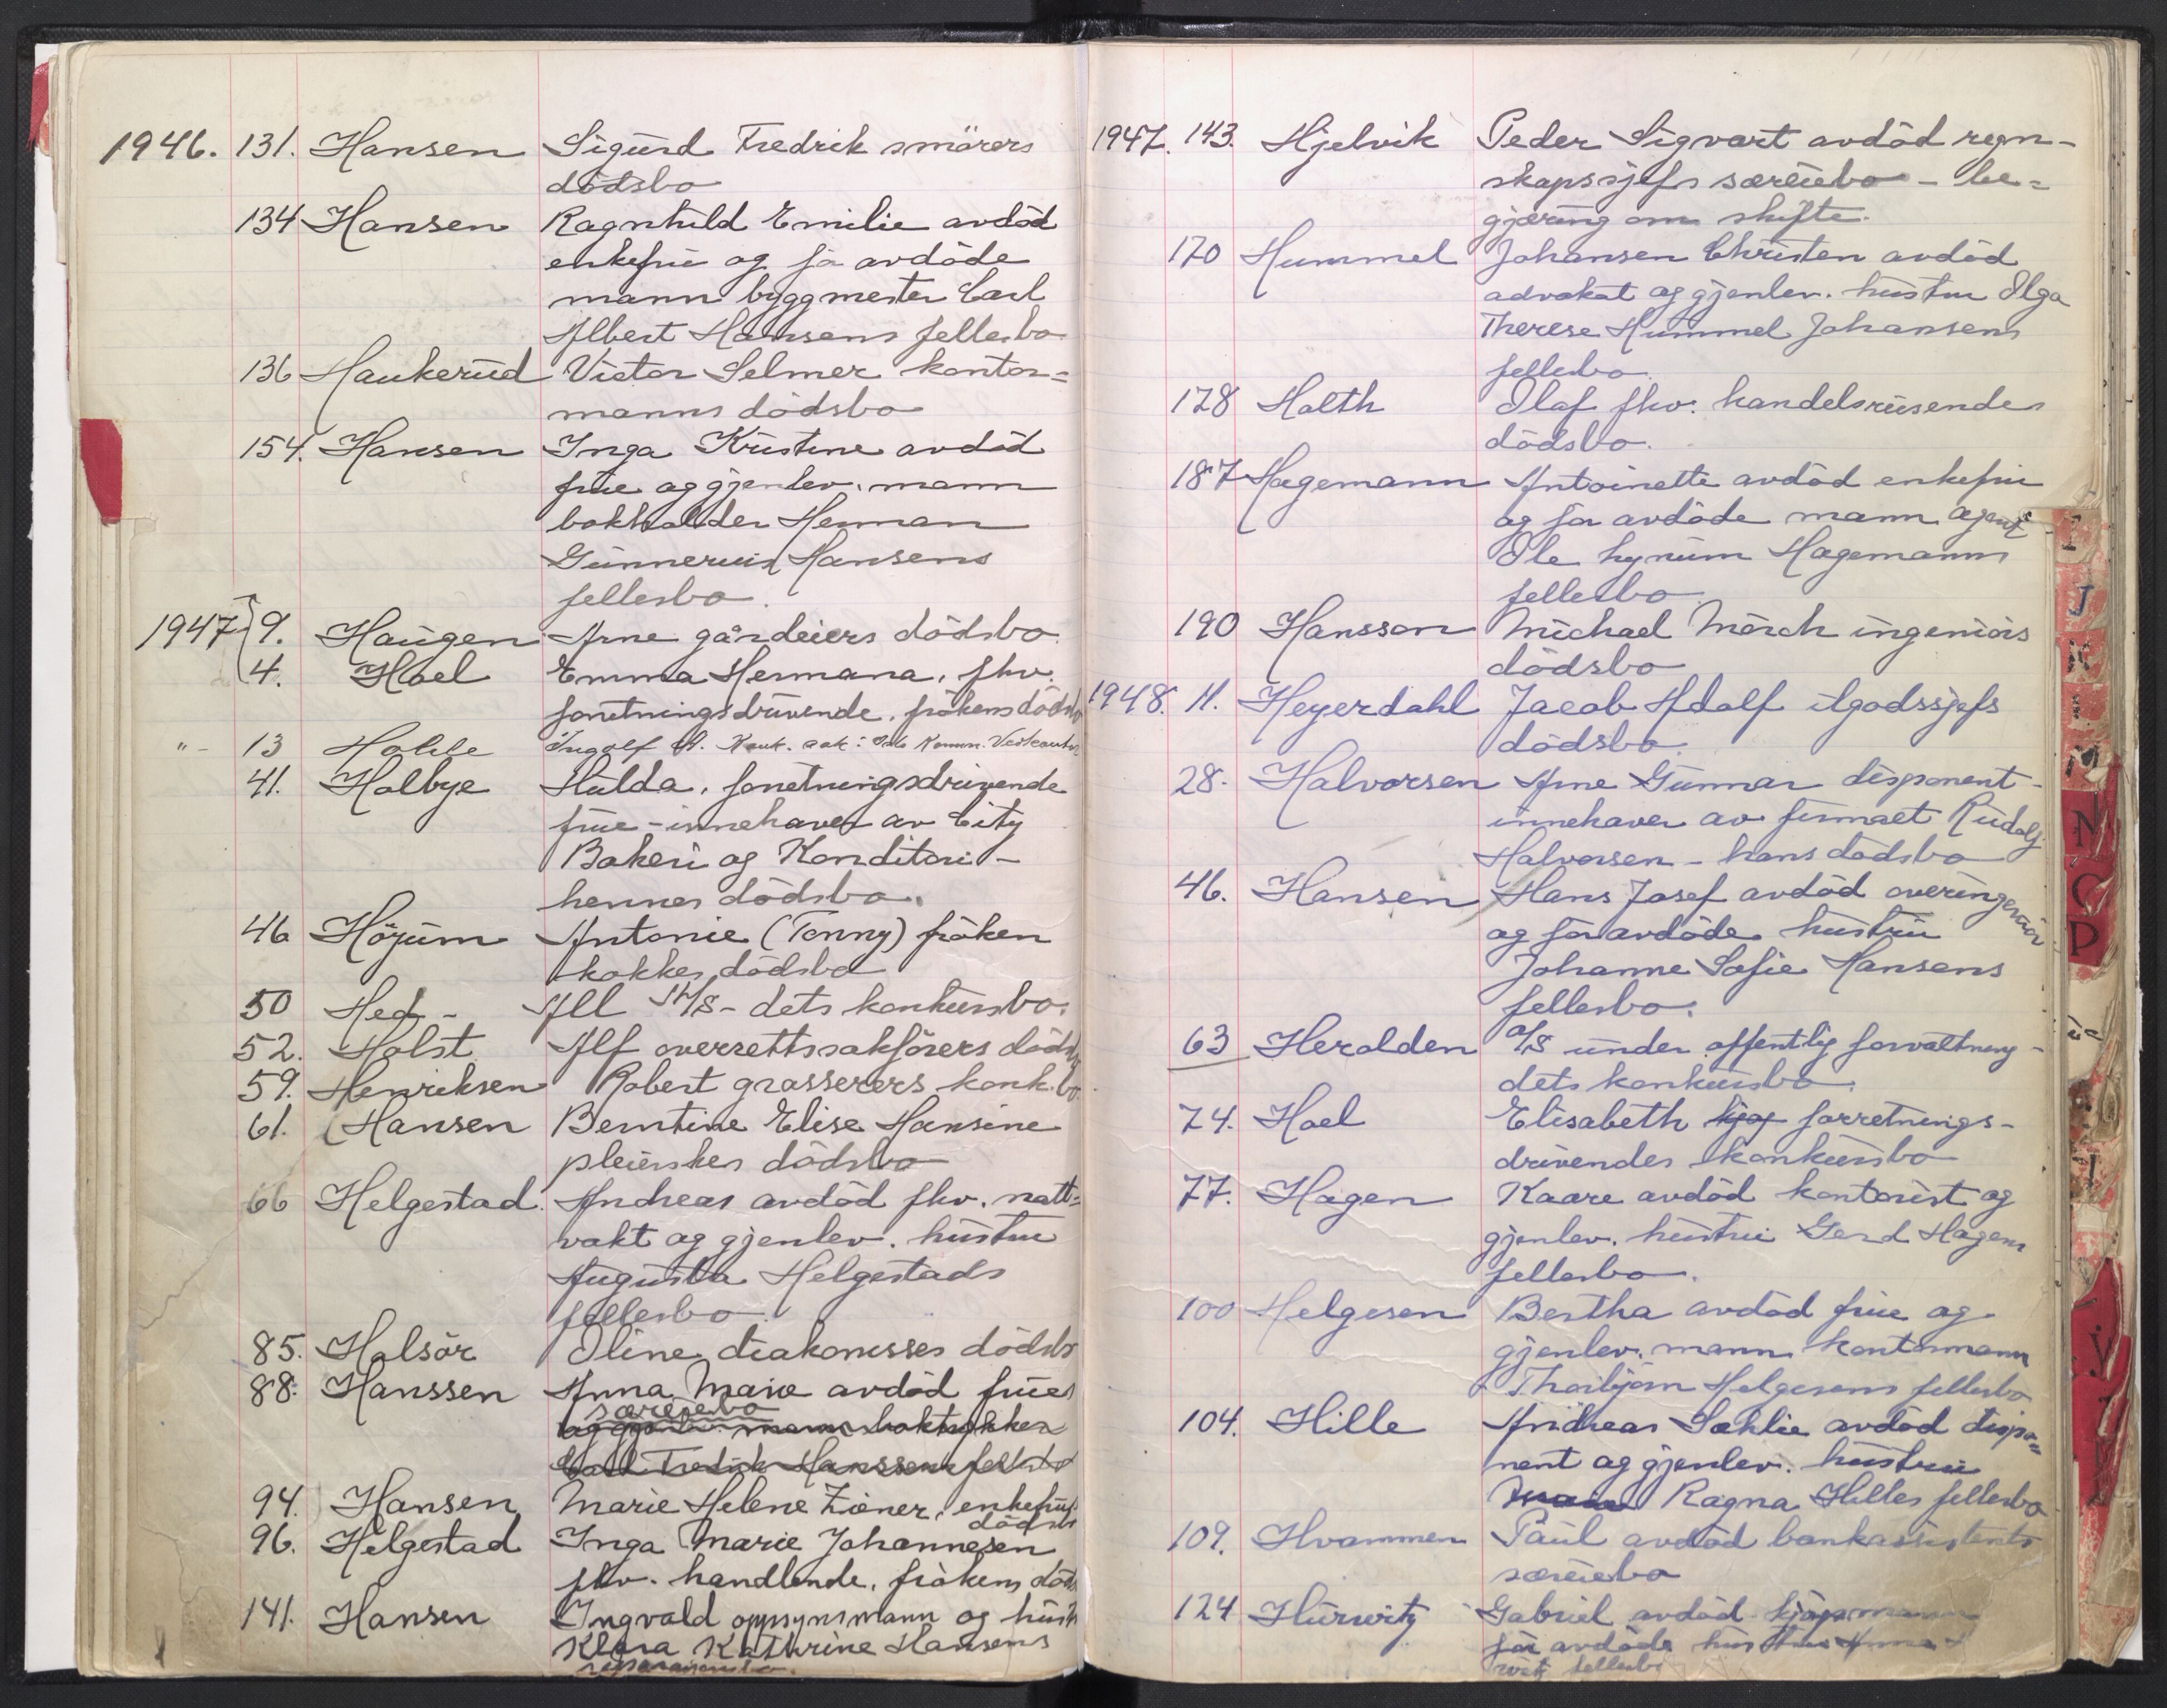 1946. 131. Hansen Sigurd Fredrik smörers
dödsbo
134 Hansen Ragnhild Emilie avdöd
enkefrue og för avdöde
mann byggmester Carl
Albert Hansens fellesbo
136 Haukerud Victor Selmer kontor=
manns dödsbo
154. Hansen Inga Kristine avdöd
frue og gjenlev. mann
bokholder Herman
Gunnerius Hansens
fellesbo.
1947 9. Haugen Arne gårdeiers dödsbo.
4. Hoel Emma Hermana, fhv.
forretningsdrivende, frökens dödsbo
" - 13 Ingolf
41. Holbye Hulda, forretningsdrivende
frue - innehaver av City
Bakeri og Konditori -
hennes dödsbo.
46 Höyum Antonie (Tonny) fröken
kokkes dödsbo
50 Hed - All A/S - dets konkursbo.
52. Holst Alf overrettssakförers dödsbo
59. Henriksen Robert grosserers konk.bo.
61. Hansen Berntine Elise Hansine
pleierskes dödsbo
66 Helgestad. Andreas avdöd fhv. natt=
vakt og gjenlev. hustru
Augusta Helgestads
fellesbo.
85. Holsör Oline diakonisses dödsbo
88. Hanssen Anna Marie avdöd frues
særeiebo
og gjenlev. mann boktrykker
Carl Fredrik Hanssens fellesbo
94. Hansen Marie Helene Ziener, enkefrus
dödsbo
96. Helgestad Inga Marie Johannesen
fhv. handlende, frökens döds
141. Hansen Ingvald oppsynsmann og hust
Klara Kathrine Hansens
1947. 143. Hjelvik Peder Sigvart avdöd regn-
skapssjefs særeiebo - be=
gjæring om skifte.
170 Hummel Johansen Christen avdöd
advokat og gjenlev. hustru Olga
Therese Hummel Johansens
fellesbo.
178 Holth Olaf fhv. handelsreisendes
dödsbo.
187 Hagemann Antoinette avdöd enkefrue
og för avdöde mann agent
Ole Hagemanns
fellesbo
190 Hansson Michael Mörch ingeniörs
dödsbo
1948. 11. Heyerdahl Jacob Adolf ilgodssjefs
dödsbo.
28. Halvorsen Arne Gunnar disponent -
innehaver av firmaet Rudolf
Halvorsen - hans dödsbo
46. Hansen Hans Josef avdöd overingeniör
og för avdöde hustru
Johanne Sofie Hansens
fellesbo.
63 Heralden A/S under offentlig forvaltning -
dets konkursbo.
74. Hoel Elisabeth forretnings-
drivendes konkursbo
77. Hagen Kaare avdöd kontorist og
gjenlev. hustru Gerd Hagens
fellesbo.
100 Helgesen Bertha avdöd frue og
gjenlev. mann kontormann
Thorbjörn Helgesens fellesbo
104. Hille Andreas Sæhlie avdöd dispo=
nent og gjenlev. hustru
Ragna Hilles fellesbo
109. Hvammen Paul avdöd bankassistents
særeiebo
124 Hurwitz Gabriel avdöd kjöpmann
för avdöde hustru Anna
witz fellesbo
I
J
K
L
M
N
O
P